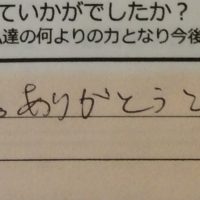 ていかがでしたか？
達の何よりの力となり今後
ありがとう